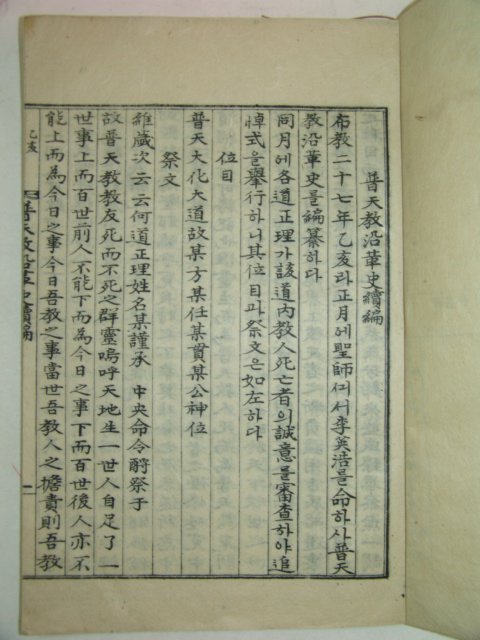 普天教沿革史續編
布教二十七年乙亥라正月에聖師께서李英浩를命하사普天
教沿革史를編纂하다
同月에各道正理가該道內教人死亡者의誠意를審查하야追
悼式을舉行하니其位目과祭文은如左하다
位目
普天大化大道故某方某任某貫某公神位
祭文
維歲次云云何道正理姓名某謹承 中央命令酹祭于
故普天教教友死而不死之群靈嗚呼天地生一世人自足了一
世事上而百世前人不能下而為今日之事下而百世後人亦不
能上而為今日之事今日吾教之事當世吾教人之擔責則吾教
乙亥
普天教沿革史續編
一